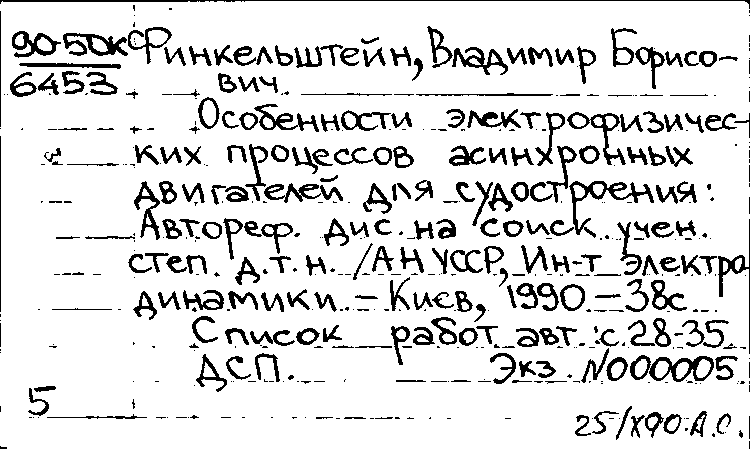 90-50к Финкельштейн, Владимир Борисо-
6453 вич
Особенности электрофизичес-
ких процессов асинхронных
двигателей для судостроения:
Автореф. дис. на соиск. учен.
степ. д.т.н. /АН УССР, Ин-т электро
динамики. – Киев, 1990 – 38с
Список работ авт.: с. 28-35
ДСП. Экз. №000005
5
25/X90 А.С.